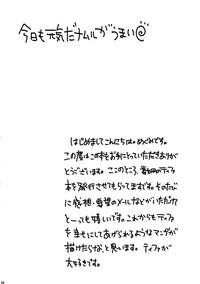 今日も元気だナムルがうまい@
はじめましてこんにちは。めどれです。
この度はこの本をお手にとっていただきありが
とうございます。ここのところ、
本を発行させてもらってます。そのたび
に感想・希望のメールなどがいただけて
と〜っても嬉しいです。これからもティファ
を幸せにしてあげられるようなマンガが
描けたらな、と思います。ティファが
大好きです。